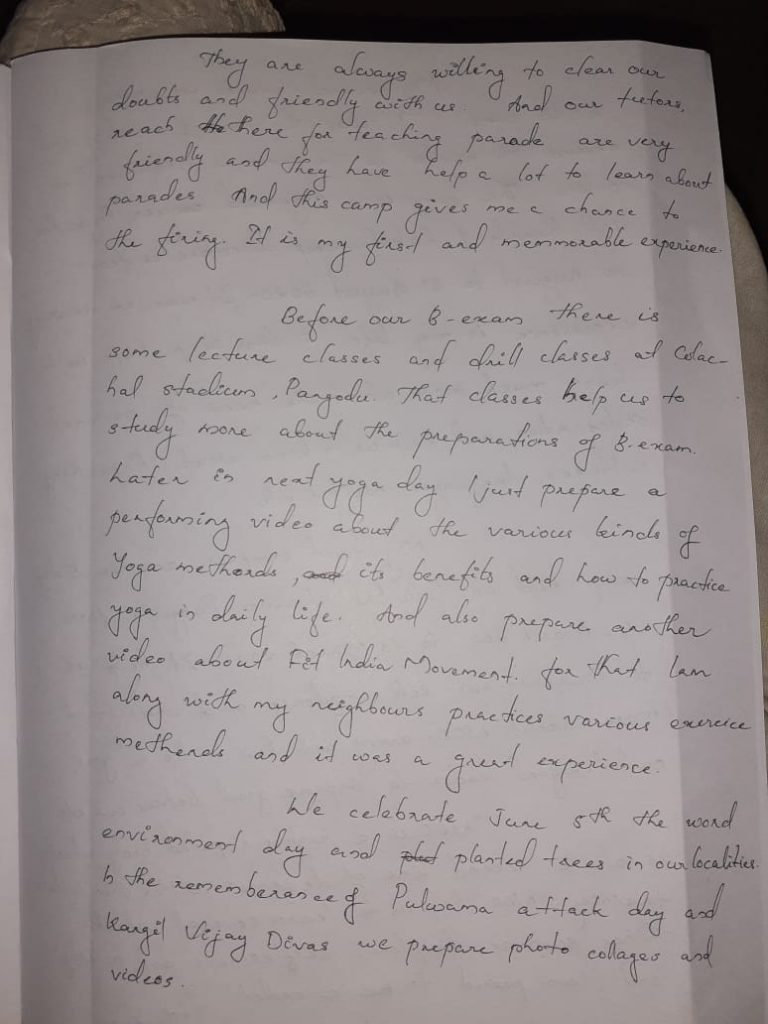 They are always willing to clear our
doubts and friendly with us. And our tutors,
reach there for teaching parade are very
friendly and they have help a lot to learn about
parades And this camp gives me a chance to
the firing. It is my first and memmorable experience.
Before our B-exam there is
some lecture classes and drill classes at Colac-
hal stadium, Pangodu. That classes help us to
study more about the preparations of B-exam.
Later in next yoga day I just prepare a
performing video about the various kinds of
Yoga methords, and its benefits and how to practice
yoga in daily life. And also prepare another
video about Fit India Movement. for that Iam
along with my neighbours practices various exercice
metherds and it was a great experience.
We celebrate June 5th the word
environment day and planted trees in our localities.
In the rememberance of Pulwama attack day and
Kargil Vijay Divas we prepare photo collages and
videos.